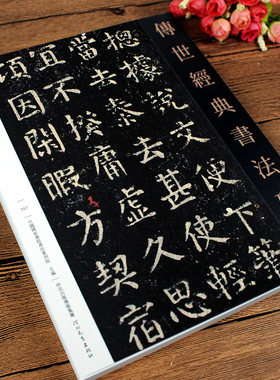 傳世經典書法
總據說文便下筆
當去泰去甚使輕
宜不揆庸虛久思
頃因閑暇方契宿